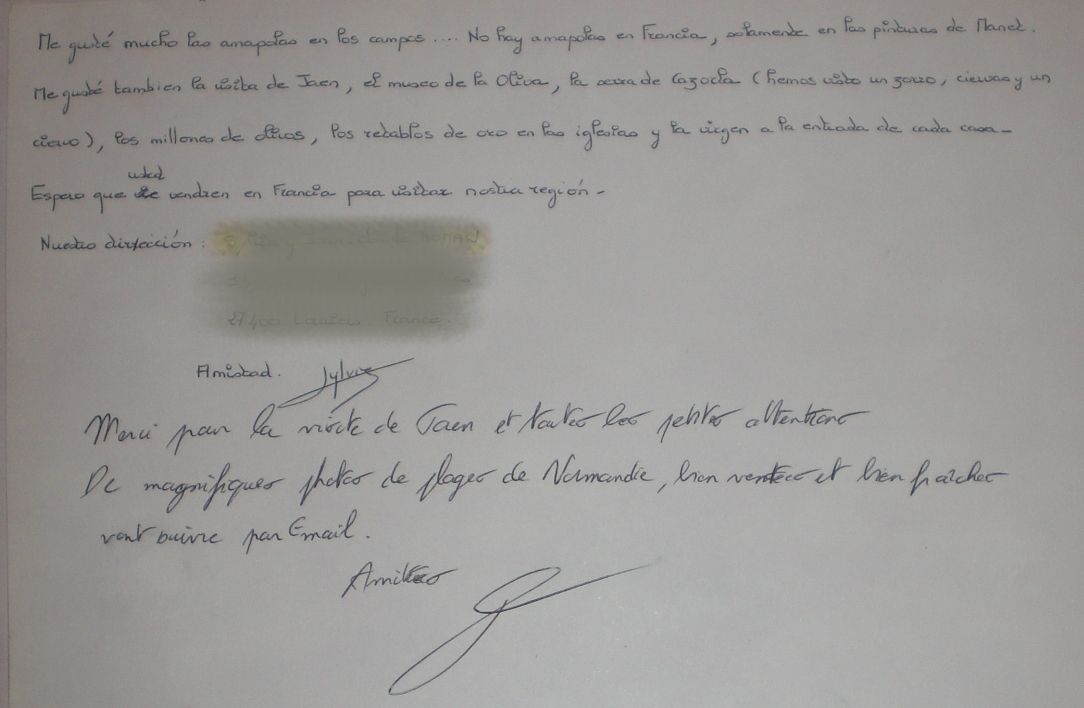 Me gusté mucho las amapolas en los campos.... No hay amapolas en Francia, solamente en las pinturas de Manet.
Me gusté tambien la visita de Jaen, el museo de la Oliva, la serra de Cazorla (hemos visto un zorro, ciervas y un
ciervo), los millones de olivos, los retablos de oro en las iglesias y la virgen a la entrada de cada casa-
usted
Espero que vendren en Francia para visitar nostra región-
Nuestro dirección :
27400 Louviers France.
Amistad. Sylvie
Merci pour la visite de Jaen et toutes les petites attentions
De magnifiques photos de plages de Normandie, bien ventées et bien fraîches
vont suivre par Email.
Amitiés